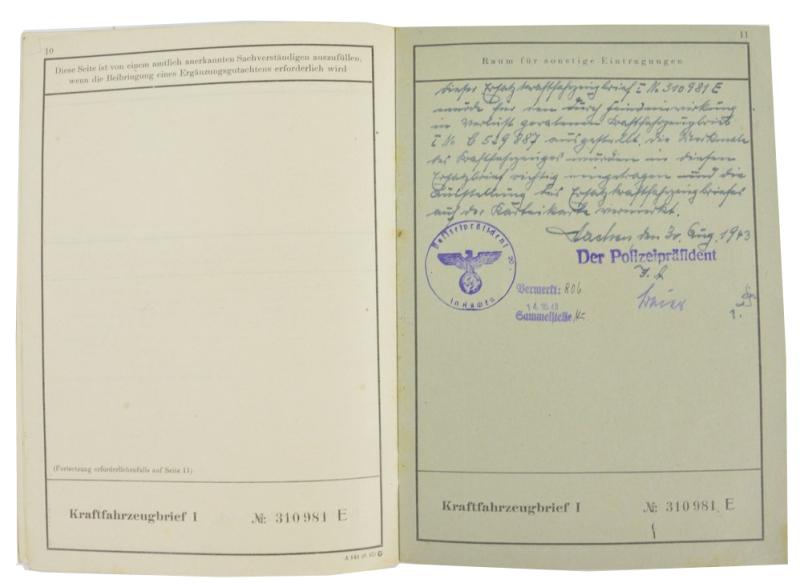 10
Diese Seite ist von einem amtlich anerkannten Sachverständigen auszufüllen,
wenn die Beibringung eines Ergänzungsgutachtens erforderlich wird
(Fortsetzung erforderlichenfalls auf Seite 11)
Kraftfahrzeugbrief I № 310981 E
11
Raum für sonstige Eintragungen
Dieser Ersatzkraftfahrzeugbrief I No. 310981 E
wurde für den durch Feindeinwirkung
in Verlust geratenen Kraftfahrzeugbrief
I No 6529887 ausgestellt. Die Merkmale
des Kraftfahrzeuges wurden in diesen
Ersatzbrief richtig eingetragen und die
Ausstellung des Ersatzkraftfahrzeugbriefes
auf der Karteikarte vermerkt.
Aachen, den 30. Aug. 1943
Der Polizeipräsident
Polizeipräsident
in Aachen
Vermerkt: 806
Sammelstelle
Kraftfahrzeugbrief I № 310981 E